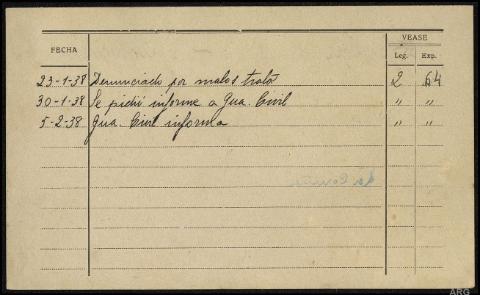 FECHA VEASE
Leg. Exp.
23-1-38 Denunciado por malos trato 2 64
30-1-38 Se pidió informe a Gua. Civil " "
5-2-38 Gua. Civil informa " "
ARG